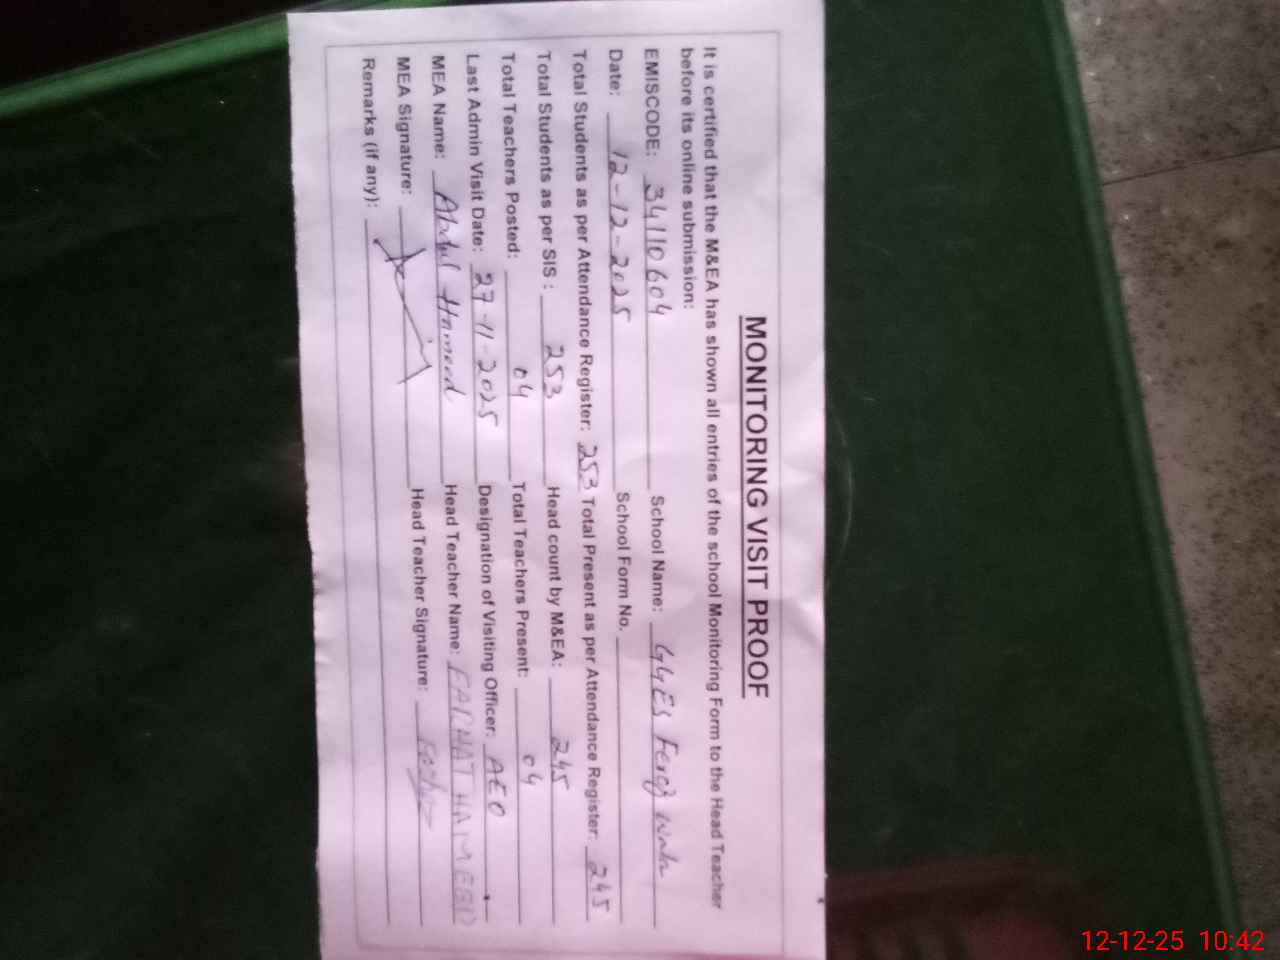 MONITORING VISIT PROOF
It is certified that the M&EA has shown all entries of the school Monitoring Form to the Head Teacher
before its online submission:
EMISCODE: 34110604 School Name: GGES Feroz
Date: 12-12-2025 School Form No.
Total Students as per Attendance Register: 253 Total Present as per Attendance Register: 245
Total Students as per SIS : 253 Head count by M&EA: 245
Total Teachers Posted: 04 Total Teachers Present: 04
Last Admin Visit Date: 27-11-2025 Designation of Visiting Officer: AEO
MEA Name: Abdul Hameed Head Teacher Name:
MEA Signature: Head Teacher Signature:
Remarks (if any):
12-12-25 10:42